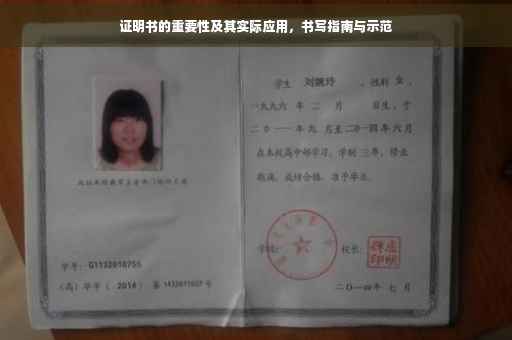 证明书的重要性及其实际应用，书写指南与示范
学生 刘婉玲 ，性别 女 ，
一九九六 年 二 月 日生，于
二〇一一 年 九 月至 二〇一四 年 六 月
在本校高中部学习，学制 三 年，修业
期满，成绩合格，准予毕业。
学校： 校长：
二〇一四年 七 月
学号： G1132010755
（高）毕字（ 2014 ）第 1432011027 号